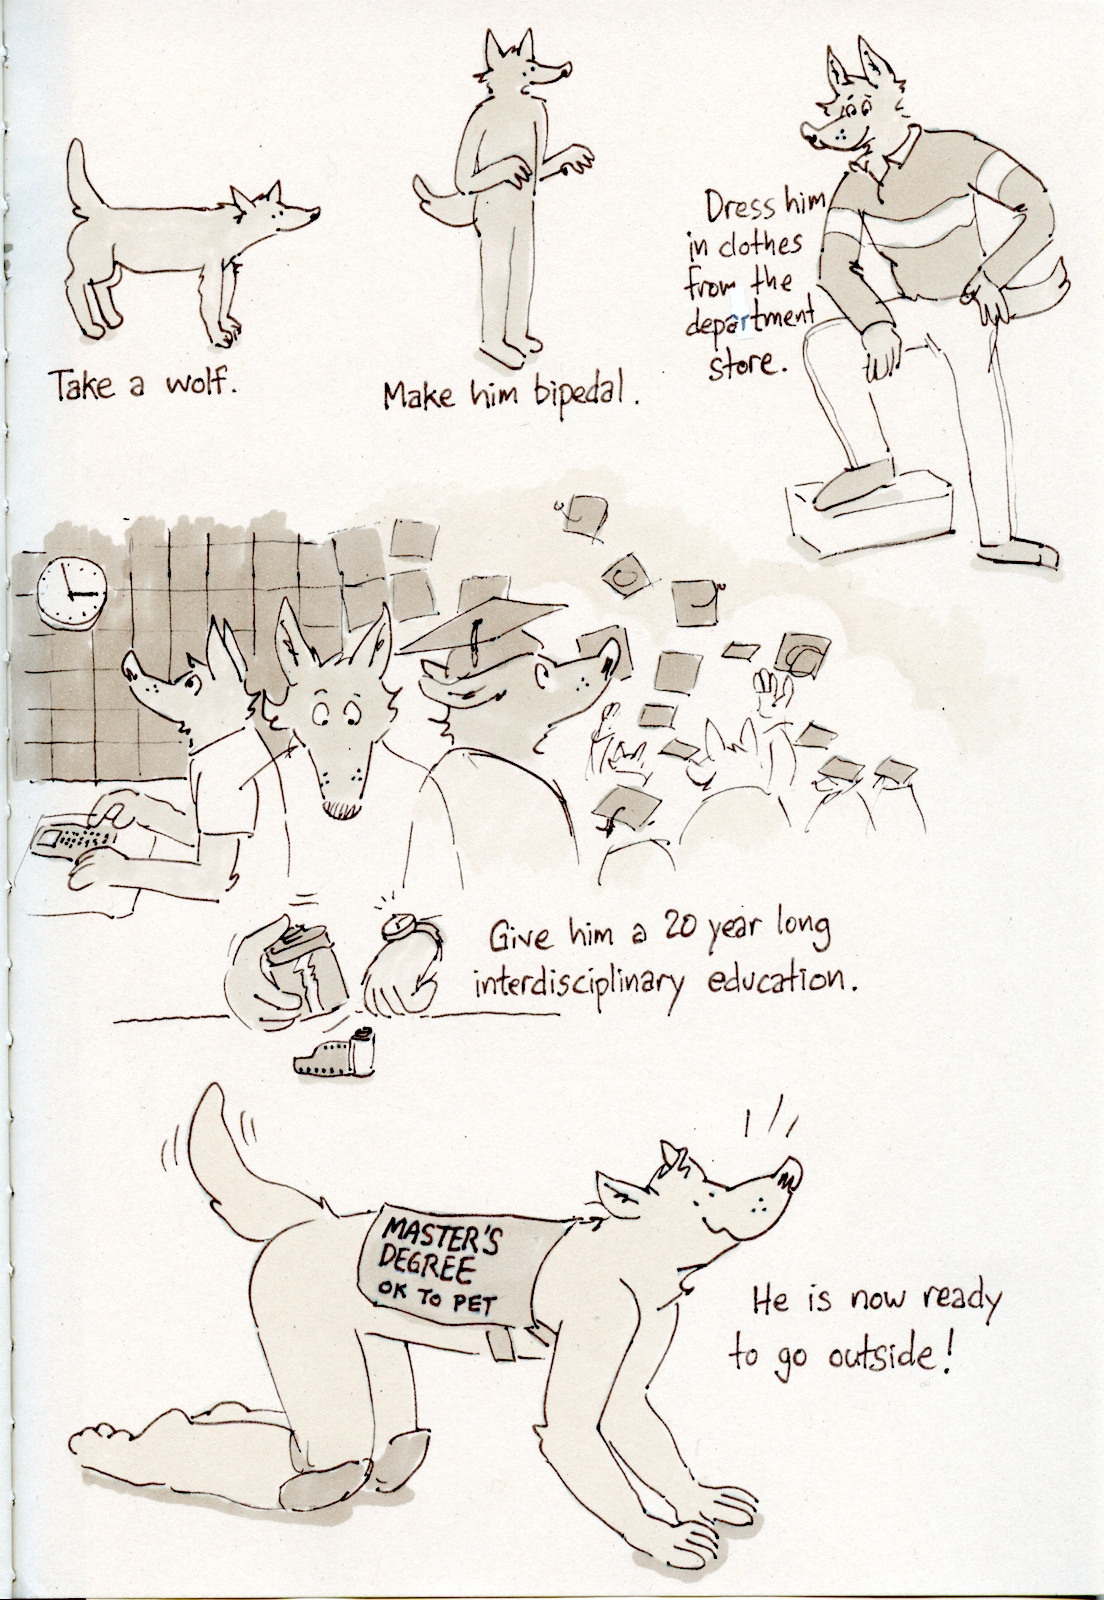 Take a wolf.
Make him bipedal.
Dress him
in clothes
from the
department
store.
Give him a 20 year long
interdisciplinary education.
MASTER'S
DEGREE
OK TO PET
He is now ready
to go outside!